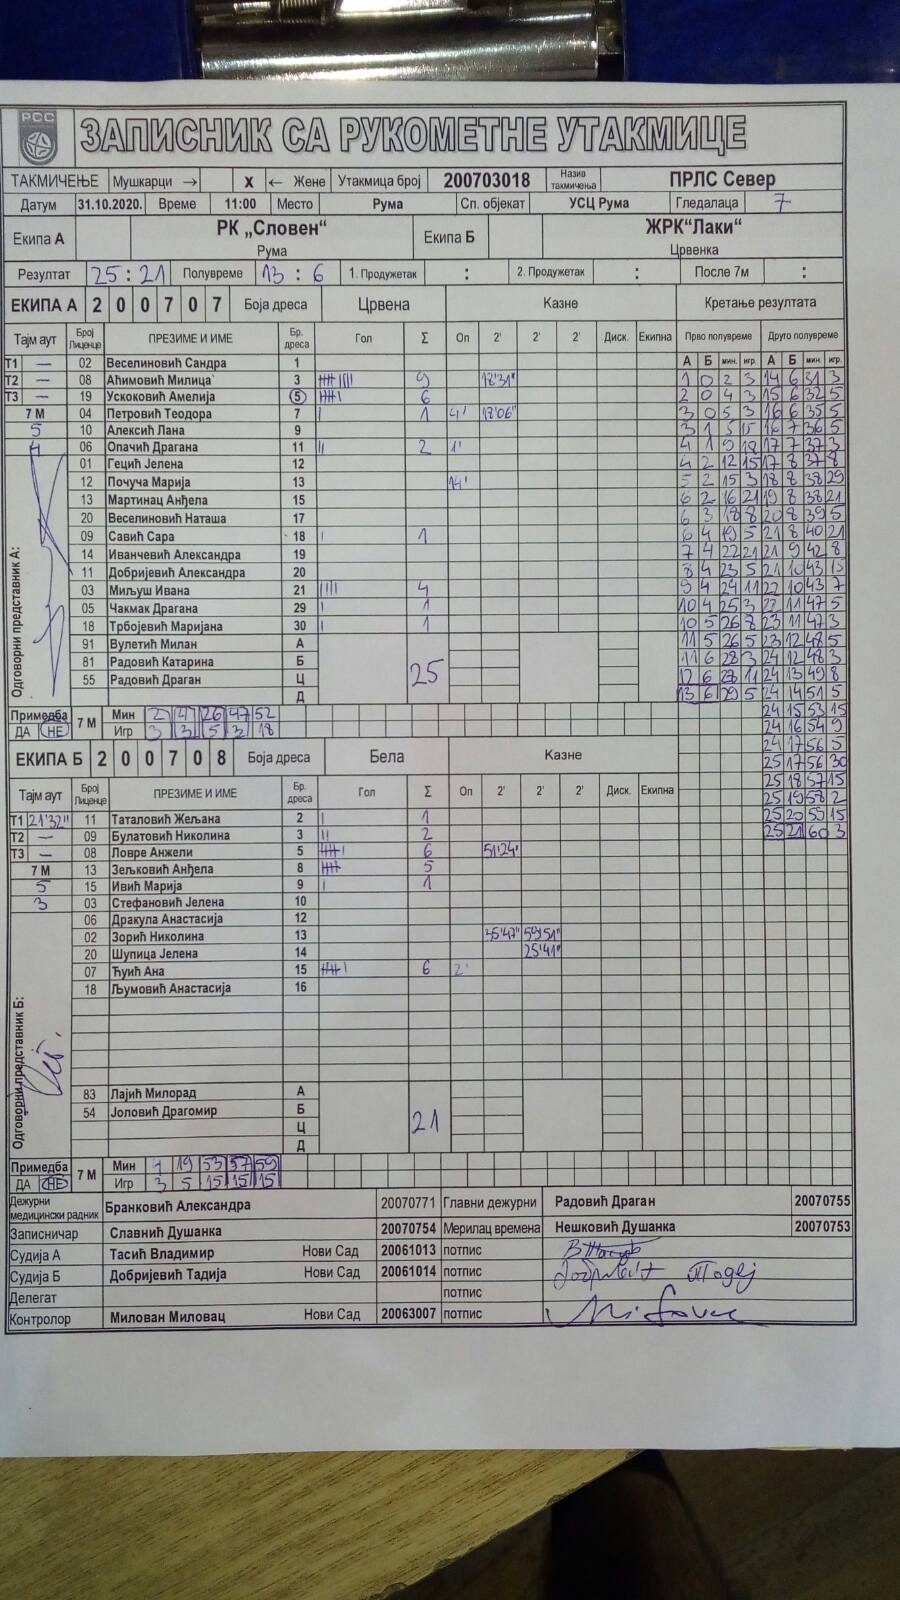 РСС
ЗАПИСНИК СА РУКОМЕТНЕ УТАКМИЦЕ
ТАКМИЧЕЊЕ Мушкарци → X ← Жене Утакмица број 200703018 Назив такмичења ПРЛС Север
Датум 31.10.2020. Време 11:00 Место Рума Сп. објекат УСЦ Рума Гледалаца 7
Екипа А РК „Словен” Рума Екипа Б ЖРК“Лаки” Црвенка
Резултат 25 : 21 Полувреме 13 : 6 1. Продужетак : 2. Продужетак : После 7м :
ЕКИПА А 2 0 0 7 0 7 Боја дреса Црвена Казне Кретање резултата
Тајм аут Број Лиценце ПРЕЗИМЕ И ИМЕ Бр. дреса Гол Σ Оп 2' 2' 2' Диск. Екипна Прво полувреме Друго полувреме
А Б мин. игр. А Б мин. игр.
Т1 — 02 Веселиновић Сандра 1
Т2 — 08 Аћимовић Милица 3 9 18'31" 1 0 2 3 14 6 31 3
Т3 — 19 Ускоковић Амелија 5 6 2 0 4 3 15 6 32 5
7 М 04 Петровић Теодора 7 1 4' 18'06" 3 0 5 3 16 6 35 5
5 10 Алексић Лана 9 3 1 16 7 36 5
4 06 Опачић Драгана 11 2 1' 4 1 9 18 17 7 37 3
01 Гецић Јелена 12 4 2 12 15 17 8 37 8
12 Почуча Марија 13 14' 5 2 15 3 18 8 38 29
13 Мартинац Анђела 15 6 2 16 21 19 8 38 21
20 Веселиновић Наташа 17 6 3 18 8 20 8 39 5
09 Савић Сара 18 1 6 4 19 5 21 8 40 21
14 Иванчевић Александра 19 7 4 22 21 21 9 42 8
11 Добријевић Александра 20 8 4 23 5 21 10 43 15
03 Миљуш Ивана 21 4 9 4 24 11 22 10 43 7
05 Чакмак Драгана 29 1 10 4 25 3 22 11 47 5
18 Трбојевић Маријана 30 1 10 5 26 8 23 11 47 3
91 Вулетић Милан А 11 5 26 5 23 12 48 5
81 Радовић Катарина Б 25 11 6 28 3 24 12 48 3
55 Радовић Драган Ц 12 6 11 24 13 49 8
Д 13 6 29 5 24 14 51 5
Одговорни представник А:
Примедба 7 М Мин 2 26 47 52 24 15 53 15
ДА НЕ Игр 3 3 5 3 18 24 16 54 9
24 17 56 5
ЕКИПА Б 2 0 0 7 0 8 Боја дреса Бела Казне 25 17 56 30
Тајм аут Број Лиценце ПРЕЗИМЕ И ИМЕ Бр. дреса Гол Σ Оп 2' 2' 2' Диск. Екипна 25 18 57 15
25 19 58 2
Т1 21'32" 11 Таталовић Жељана 2 1 25 20 59 15
Т2 — 09 Булатовић Николина 3 2 25 21 60 3
Т3 — 08 Ловре Анжели 5 6 51'24"
7 М 13 Зељковић Анђела 8 5
5 15 Ивић Марија 9 1
3 03 Стефановић Јелена 10
06 Дракула Анастасија 12
02 Зорић Николина 13 59'51"
20 Шупица Јелена 14 25'41"
07 Ћуић Ана 15 6 2'
18 Љумовић Анастасија 16
83 Лајић Милорад А
54 Јоловић Драгомир Б 21
Ц
Д
Одговорни представник Б:
Примедба 7 М Мин 19 53 57 59
ДА НЕ Игр 3 5 15 15 15
Дежурни медицински радник Бранковић Александра 20070771 Главни дежурни Радовић Драган 20070755
Записничар Славнић Душанка 20070754 Мерилац времена Нешковић Душанка 20070753
Судија А Тасић Владимир Нови Сад 20061013 потпис
Судија Б Добријевић Тадија Нови Сад 20061014 потпис
Делегат потпис
Контролор Милован Миловац Нови Сад 20063007 потпис